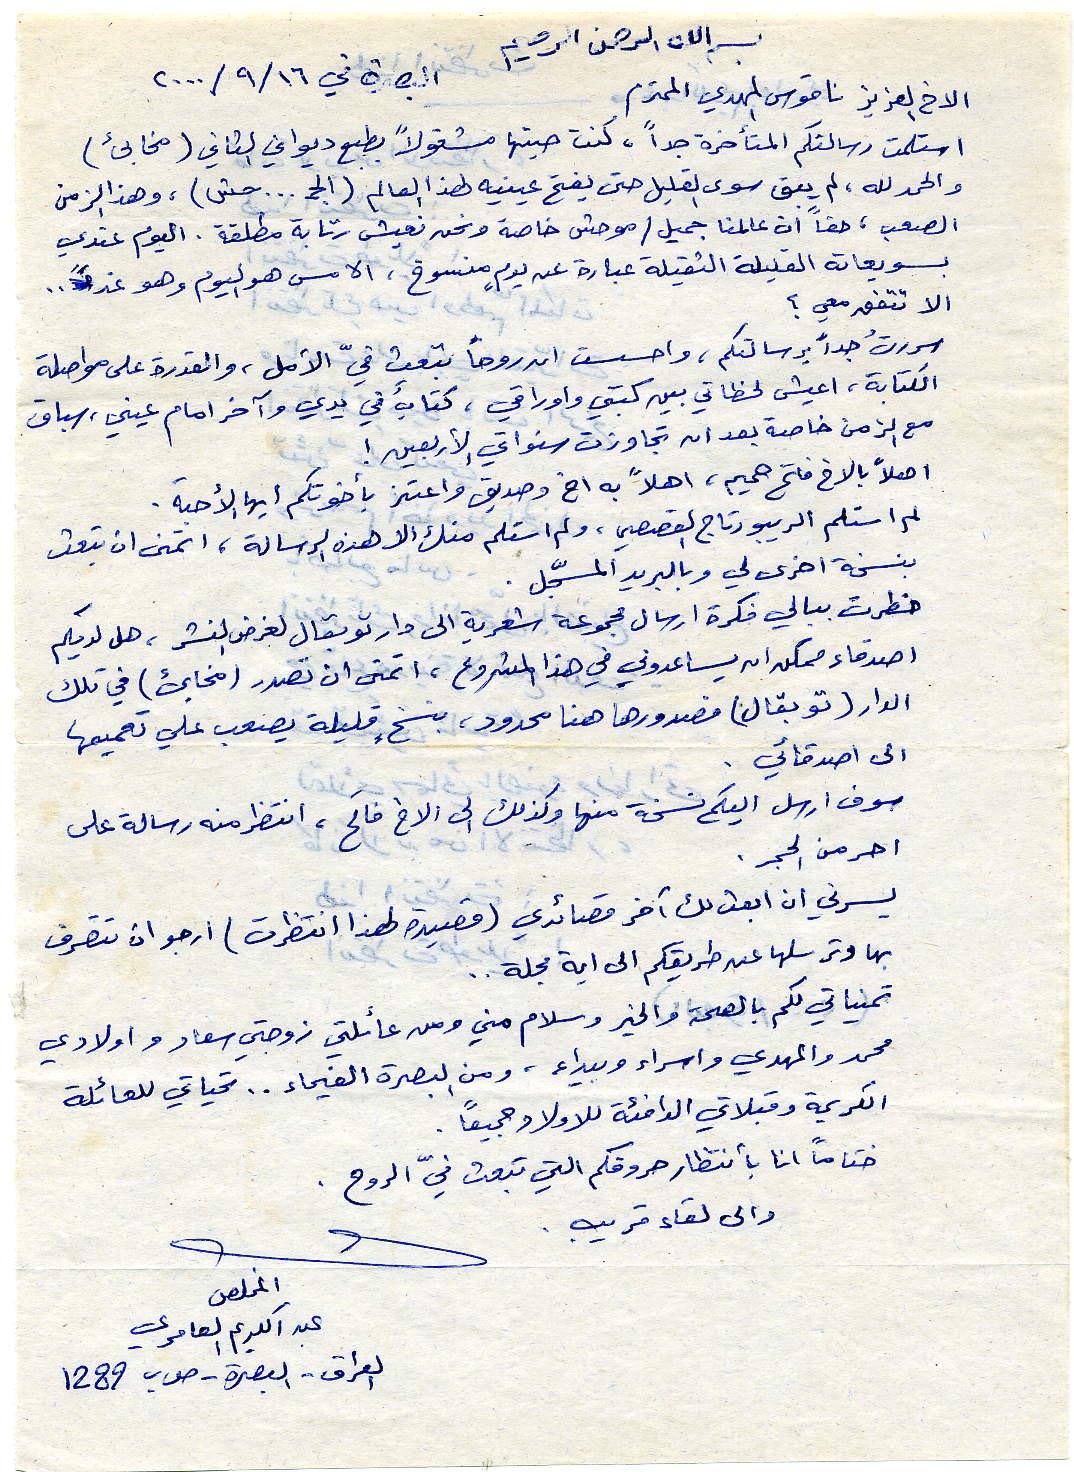 بسم الله الرحمن الرحيم
البصرة في ١٦/٩/٢٠٠٠
الاخ العزيز ناقوس المهدي المحترم
استلمت رسالتكم المتأخرة جداً، كنت حينها مشغولاً بطبع ديواني الثاني (مخابئ)
والحمد لله، لم يبق سوى القليل حتى يفتح عينيه لهذا العالم (الجـ...حش)، وهذا الزمن
الصعب، حقاً ان عالمنا جميل/موحش خاصة ونحن نعيش رتابة مطلقة. اليوم عندي
بسويعاته القليلة الثقيلة عبارة عن يومٍ منسوخ، الامس هو اليوم وهو غد..
الا تتفق معي؟
سررتُ جداً برسالتكم، واحسست ان روحاً تبعث فيّ الأمل، والقدرة على مواصلة
الكتابة، اعيش لحظاتي بين كتبي واوراقي، كتابٌ في يدي وآخر امام عيني، سباق
مع الزمن خاصة بعد ان تجاوزت سنواتي الأربعين!
اهلاً بالاخ فاتح حميم، اهلاً به اخ وصديق واعتز بأخوتكم ايها الأحبة.
لم استلم الريبورتاج القصصي، ولم استلم منك الا هذه الرسالة، اتمنى ان تبعث
بنسخة اخرى لي وبالبريد المسجّل.
خطرت ببالي فكرة ارسال مجموعة شعرية الى دار توبقال لغرض النشر، هل لديكم
اصدقاء ممكن ان يساعدوني في هذا المشروع، اتمنى ان تصدر (مخابئ) في تلك
الدار (توبقال) فصدورها هنا محدود، بنسخٍ قليلة يصعب علي تعميمها
الى اصدقائي.
سوف ارسل اليكم نسخة منها وكذلك الى الاخ فاتح، انتظر منه رسالة على
احر من الجمر.
يسرني ان ابعث لك آخر قصائدي (قصيدة لهذا انتظرت) ارجو ان تتصرف
بها وترسلها عن طريقكم الى اية مجلة..
تمنياتي لكم بالصحة والخير وسلام مني ومن عائلتي زوجتي سعاد واولادي
محمد والمهدي واسراء وبيداء، ومن البصرة الفيحاء.. تحياتي للعائلة
الكريمة وقبلاتي الدافئة للاولاد جميعاً.
ختاماً انا بأنتظار حروفكم التي تبعث فيّ الروح.
والى لقاء قريب.
المخلص
عبد الكريم العامري
العراق - البصرة - ص.ب 1289